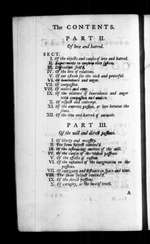 The CONTENTS.
PART II.
Of love and hatred.
SECT.
I. Of the objects and causes of love and hatred.
II. Experiments to confirm this system.
III. Difficulties solv'd.
IV. Of the love of relations.
V. Of our esteem for the rich and powerful.
VI. Of benevolence and anger.
VII. Of compassion.
VIII. Of malice and envy.
IX. Of the mixture of benevolence and anger
with compassion and malice.
X. Of respect and contempt.
XI. Of the amorous passion, or love betwixt the
sexes.
XII. Of the love and hatred of animals.
PART III.
Of the will and direct passions.
I. Of liberty and necessity.
II. The same subject continu'd.
III. Of the influencing motives of the will.
IV. Of the causes of the violent passions.
V. Of the effects of custom.
VI. Of the influence of the imagination on the
passions.
VII. Of contiguity and distance in space and time.
VIII. The same subject continu'd.
IX. Of the direct passions.
X. Of curiosity, or the love of truth.
A